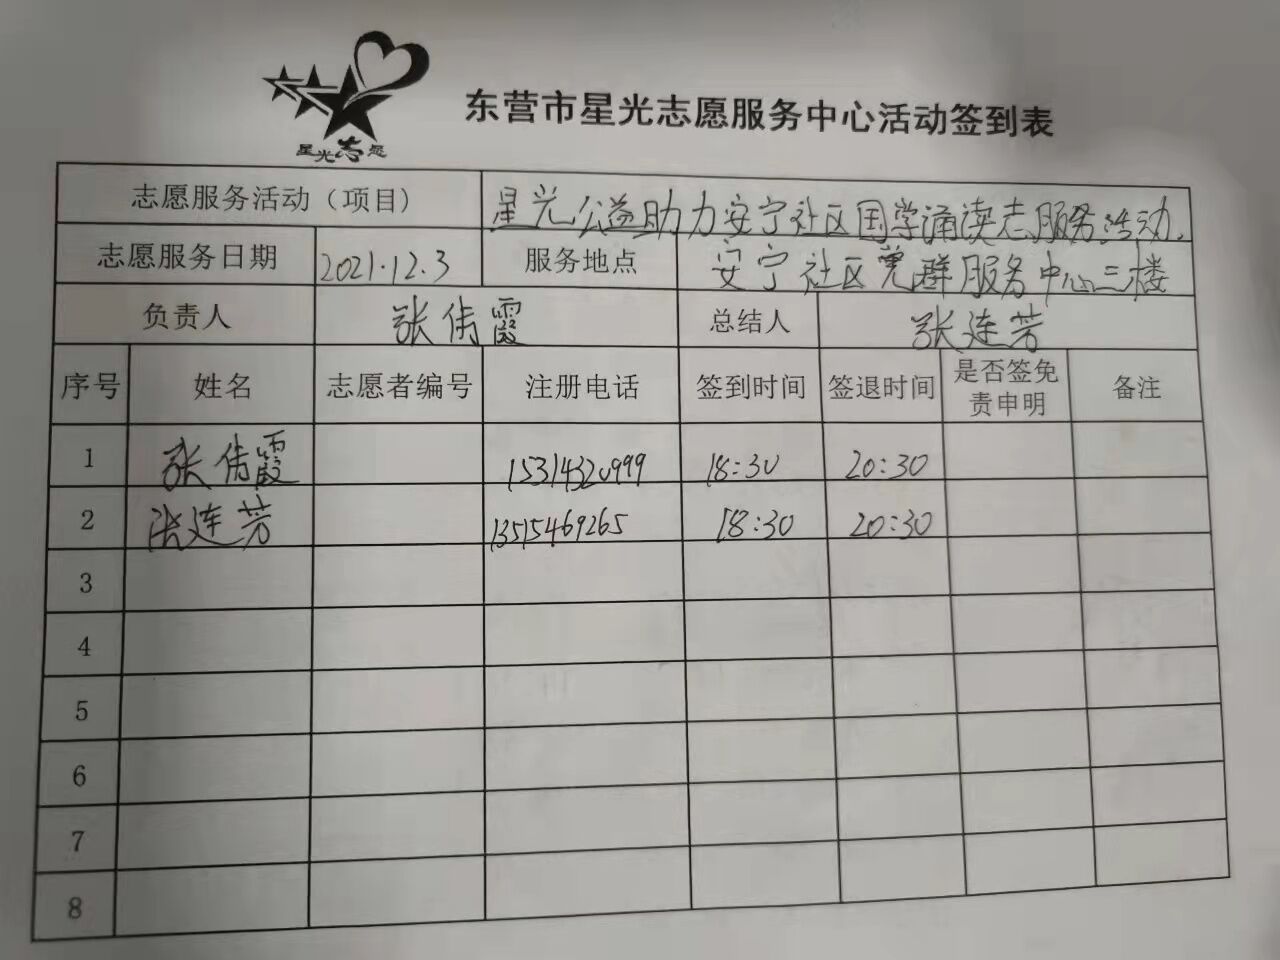 星光志愿
东营市星光志愿服务中心活动签到表
志愿服务活动（项目） 星光公益助力安宁社区国学诵读志服务活动.
志愿服务日期 2021.12.3 服务地点 安宁社区党群服务中心三楼
负责人 张伟霞 总结人 张连芳
序号 姓名 志愿者编号 注册电话 签到时间 签退时间 是否签免责申明 备注
1 张伟霞 15314320999 18:30 20:30
2 张连芳 13515469265 18:30 20:30
3
4
5
6
7
8